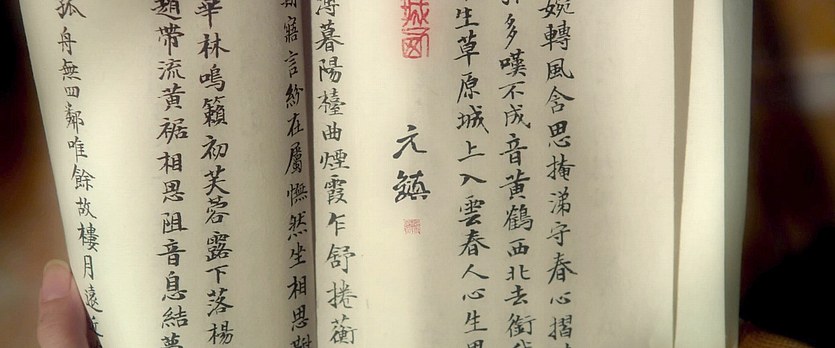 婉轉風含思掩涕守春心摺
多嘆不成音黃鶴西北去銜我
生草原城上入雲春人心生思
元鎮
薄暮陽檯曲煙霞乍舒捲蘅
斯寤言紛在屬憮然坐相思
華林鳴籟初芙蓉露下落楊
趙帶流黃裾相思阻音息結夢
孤舟無四鄰唯餘故樓月遠近